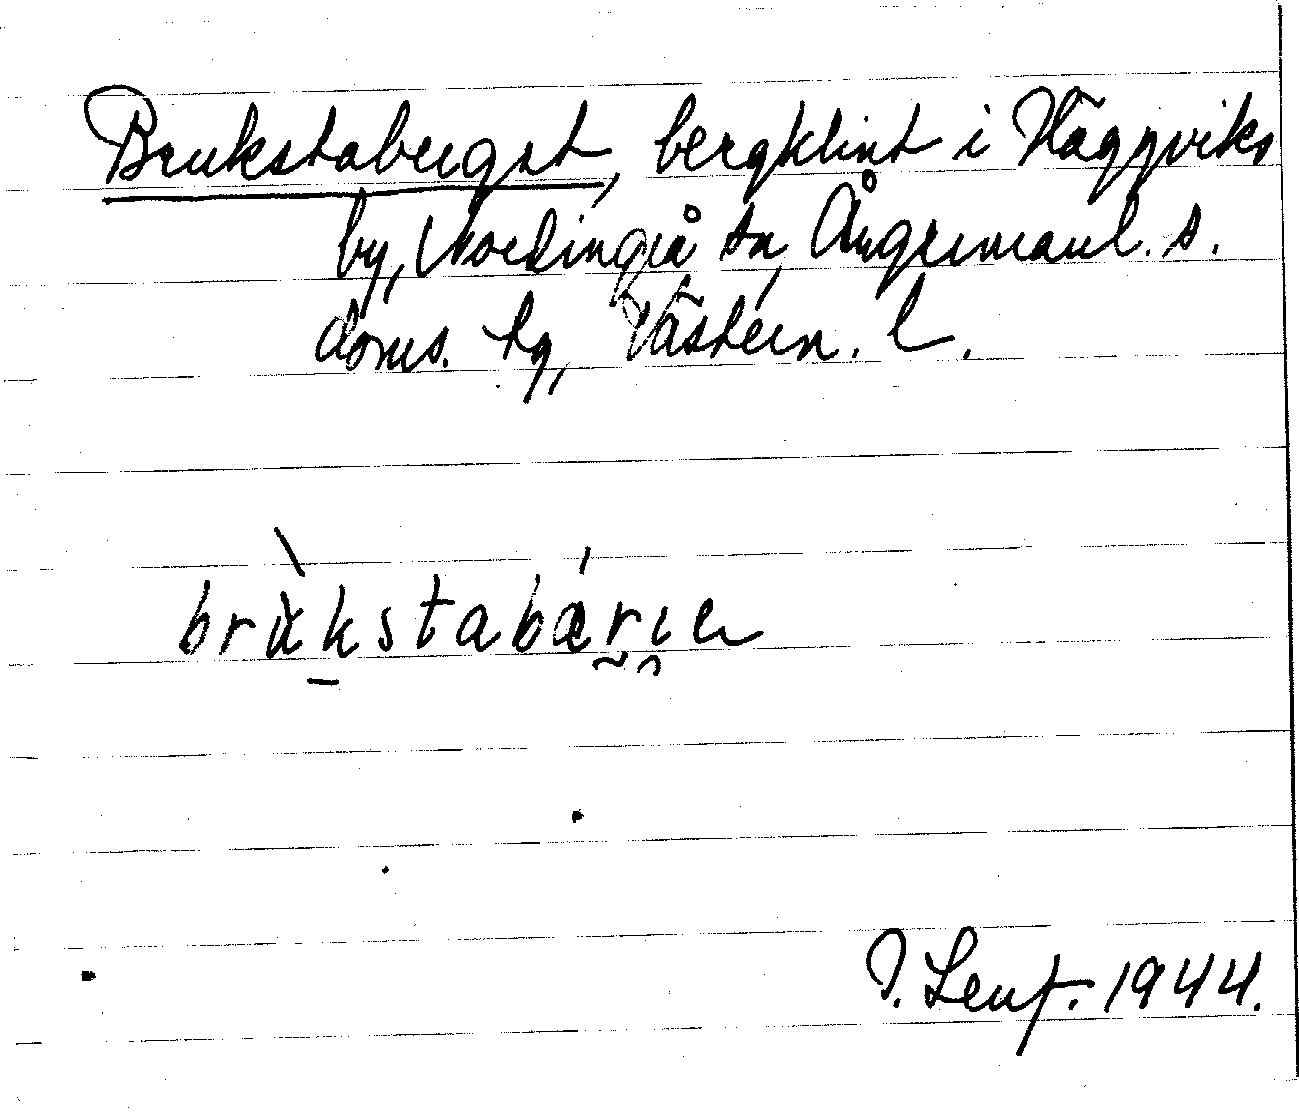 Brukstaberget, bergklint i Häggviks
by, Nordingrå sn, Ångermanl. s.
doms. tg, Västern. l.
brùkstabárıe
J. Lenf. 1944.